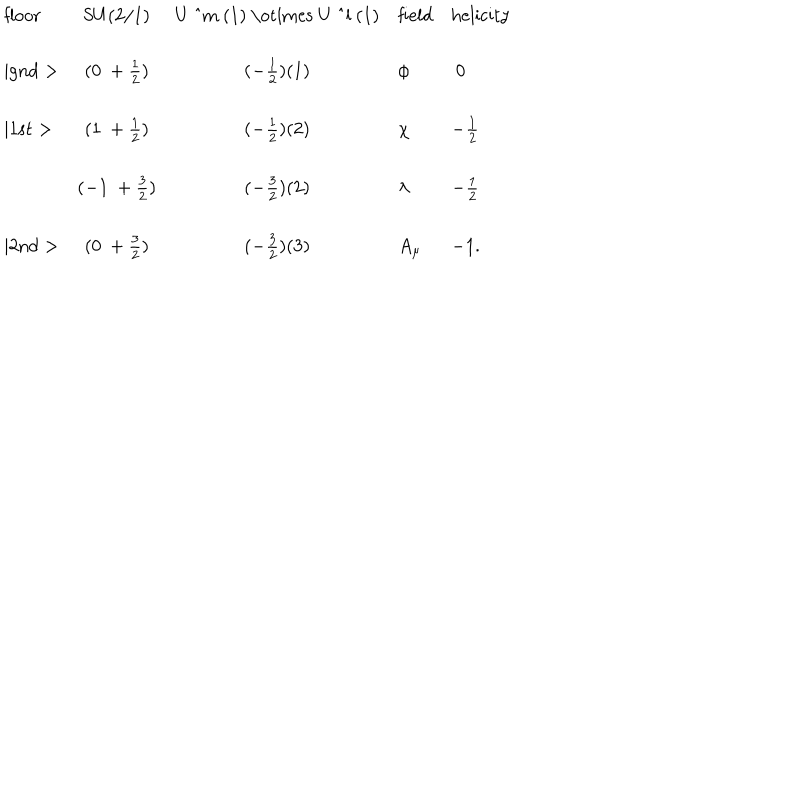 floor SU(2/1) U ^m (1) \otimes U ^l (1) field helicity
|gnd > (0 + 1/2) (-1/2)(1) ϕ 0
|1st > (1 + 1/2) (-1/2)(2) χ -1/2
(-1 + 3/2) (-3/2)(2) λ -1/2
|2nd > (0 + 3/2) (-3/2)(3) A_μ -1.